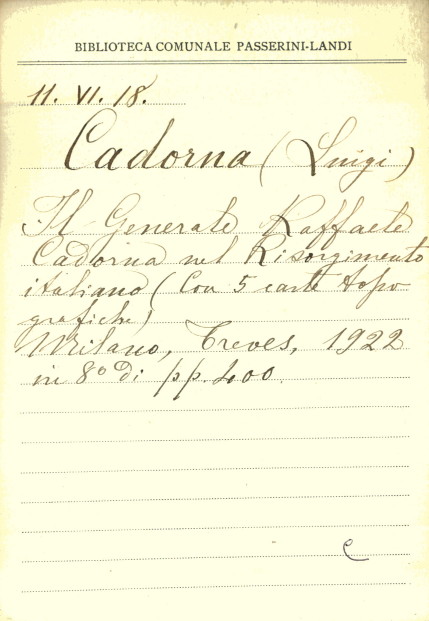 BIBLIOTECA COMUNALE PASSERINI-LANDI
11. VI. 18.
Cadorna (Luigi)
Il Generale Raffaele
Cadorna nel Risorgimento
italiano (Con 5 carte topo
grafiche)
Milano, Treves, 1922
in 8° di pp. 400.
e